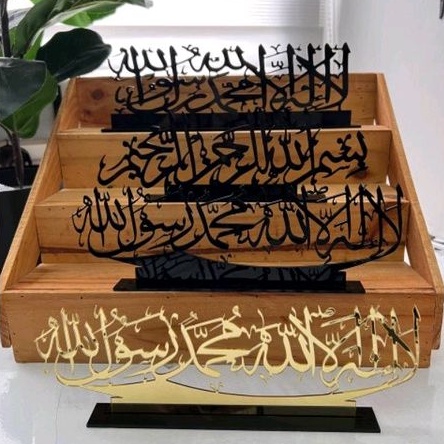 لا إله إلا الله محمد رسول الله
بسم الله الرحمن الرحيم
لا إله إلا الله محمد رسول الله
لا إله إلا الله محمد رسول الله